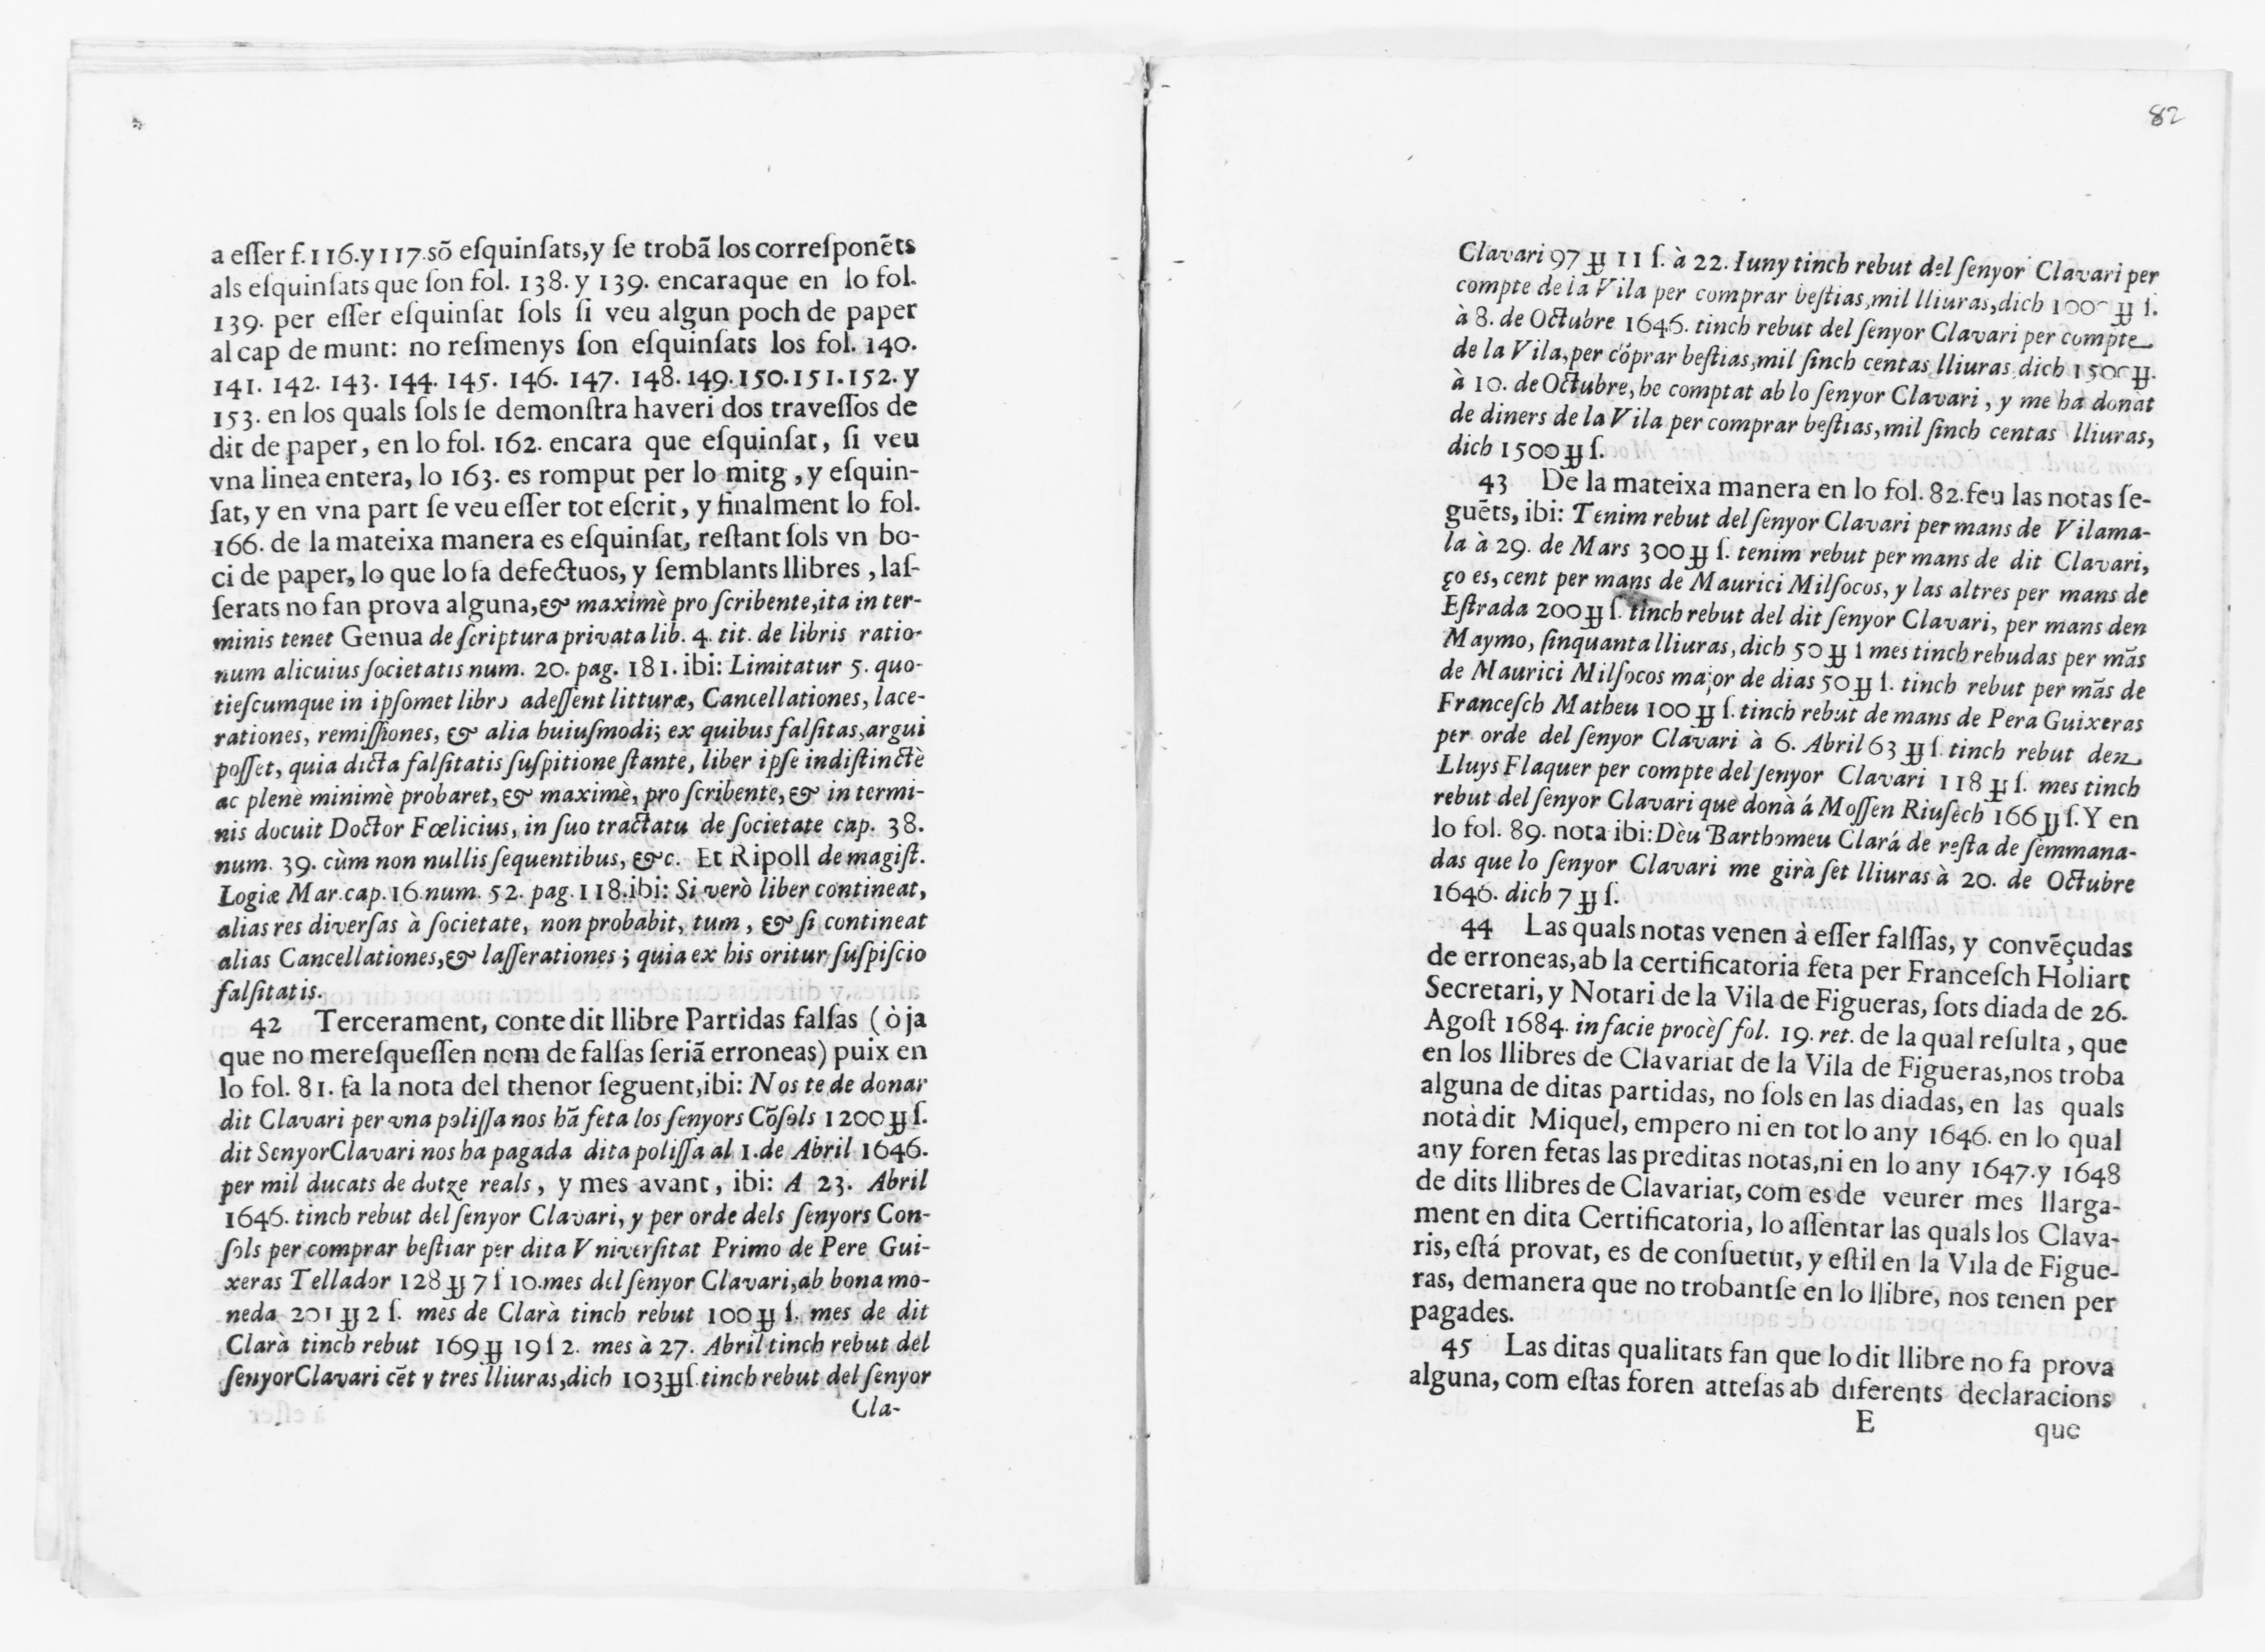 a eſſer f.116.y117.sõ eſquinſats,y ſe trobã los correſponẽts
als eſquinſats que ſon fol. 138. y 139. encaraque en lo fol.
139. per eſſer eſquinſat ſols ſi veu algun poch de paper
al cap de munt: no reſmenys ſon eſquinſats los fol. 140.
141. 142. 143. 144. 145. 146. 147. 148.149.150.151.152. y
153. en los quals ſols ſe demonſtra haveri dos traveſſos de
dit de paper, en lo fol. 162. encara que eſquinſat, ſi veu
vna linea entera, lo 163. es romput per lo mitg, y eſquin-
ſat, y en vna part ſe veu eſſer tot eſcrit, y finalment lo fol.
166. de la mateixa manera es eſquinſat, reſtant ſols vn bo-
ci de paper, lo que lo fa defectuos, y ſemblants llibres, laſ-
ſerats no fan prova alguna,& maximè pro ſcribente,ita in ter-
minis tenet Genua de ſcriptura privata lib. 4. tit. de libris ratio-
num alicuius ſocietatis num. 20. pag. 181. ibi: Limitatur 5. quo-
tieſcumque in ipſomet libro adeſſent litturæ, Cancellationes, lace-
rationes, remiſſiones, & alia huiuſmodi; ex quibus falſitas,argui
poſſet, quia dicta falſitatis ſuſpitione ſtante, liber ipſe indiſtinctè
ac plenè minimè probaret,& maximè, pro ſcribente,& in termi-
nis docuit Doctor Fœlicius, in ſuo tractatu de ſocietate cap. 38.
num. 39. cùm non nullis ſequentibus, &c. Et Ripoll de magiſt.
Logiæ Mar. cap. 16. num. 52. pag. 118.ibi: Si verò liber contineat,
alias res diverſas à ſocietate, non probabit, tum, & ſi contineat
alias Cancellationes,& laſſerationes; quia ex his oritur ſuſpiſcio
falſitatis.
42 Tercerament, conte dit llibre Partidas falſas (ò ja
que no mereſqueſſen nom de falſas ſeriã erroneas) puix en
lo fol. 81. fa la nota del thenor ſeguent,ibi: Nos te de donar
dit Clavari per vna poliſſa nos hã feta los ſenyors Cõſols 1200 ₶ ſ.
dit Senyor Clavari nos ha pagada dita poliſſa al 1. de Abril 1646.
per mil ducats de dotze reals, y mes avant, ibi: A 23. Abril
1646. tinch rebut del ſenyor Clavari, y per orde dels ſenyors Con-
ſols per comprar beſtiar per dita Vniverſitat Primo de Pere Gui-
xeras Tellador 128 ₶ 7 ſ 10.mes del ſenyor Clavari,ab bona mo-
neda 201 ₶ 2 ſ. mes de Clarà tinch rebut 100 ₶ ſ. mes de dit
Clarà tinch rebut 169 ₶ 19 ſ 2. mes à 27. Abril tinch rebut del
ſenyor Clavari cẽt y tres lliuras,dich 103 ₶ ſ. tinch rebut del ſenyor
Cla-
82
Clavari 97 ₶ 11 ſ. à 22. Iuny tinch rebut del ſenyor Clavari per
compte de la Vila per comprar beſtias,mil lliuras,dich 1000 ₶ ſ.
à 8. de Octubre 1646. tinch rebut del ſenyor Clavari per compte
de la Vila,per cõprar beſtias,mil ſinch centas lliuras dich 1500 ₶.
à 10. de Octubre, he comptat ab lo ſenyor Clavari, y me ha donat
de diners de la Vila per comprar beſtias,mil ſinch centas lliuras,
dich 1500 ₶ ſ.
43 De la mateixa manera en lo fol. 82.feu las notas ſe-
guẽts, ibi: Tenim rebut del ſenyor Clavari per mans de Vilama-
la à 29. de Mars 300 ₶ ſ. tenim rebut per mans de dit Clavari,
ço es, cent per mans de Maurici Milſocos, y las altres per mans de
Eſtrada 200 ₶ ſ. tinch rebut del dit ſenyor Clavari, per mans den
Maymo, ſinquanta lliuras, dich 50 ₶ ſ mes tinch rebudas per mãs
de Maurici Milſocos major de dias 50 ₶ ſ. tinch rebut per mãs de
Franceſch Matheu 100 ₶ ſ. tinch rebut de mans de Pera Guixeras
per orde del ſenyor Clavari à 6. Abril 63 ₶ ſ. tinch rebut den
Lluys Flaquer per compte del ſenyor Clavari 118 ₶ ſ. mes tinch
rebut del ſenyor Clavari que donà á Moſſen Riuſech 166 ₶ ſ. Y en
lo fol. 89. nota ibi: Dèu Barthomeu Clará de reſta de ſemmana-
das que lo ſenyor Clavari me girà ſet lliuras à 20. de Octubre
1646. dich 7 ₶ ſ.
44 Las quals notas venen à eſſer falſſas, y convẽçudas
de erroneas,ab la certificatoria feta per Franceſch Holiart
Secretari, y Notari de la Vila de Figueras, ſots diada de 26.
Agoſt 1684. in facie procèſ fol. 19. ret. de la qual reſulta, que
en los llibres de Clavariat de la Vila de Figueras,nos troba
alguna de ditas partidas, no ſols en las diadas, en las quals
notà dit Miquel, empero ni en tot lo any 1646. en lo qual
any foren fetas las preditas notas,ni en lo any 1647.y 1648
de dits llibres de Clavariat, com es de veurer mes llarga-
ment en dita Certificatoria, lo aſſentar las quals los Clava-
ris, eſtá provat, es de conſuetut, y eſtil en la Vila de Figue-
ras, demanera que no trobantſe en lo llibre, nos tenen per
pagades.
45 Las ditas qualitats fan que lo dit llibre no fa prova
alguna, com eſtas foren atteſas ab diferents declaracions
E que